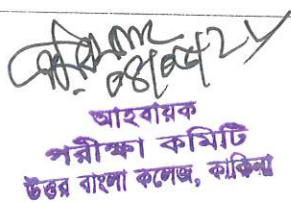 আহবায়ক
পরীক্ষা কমিটি
উত্তর বাংলা কলেজ, কাকিনা